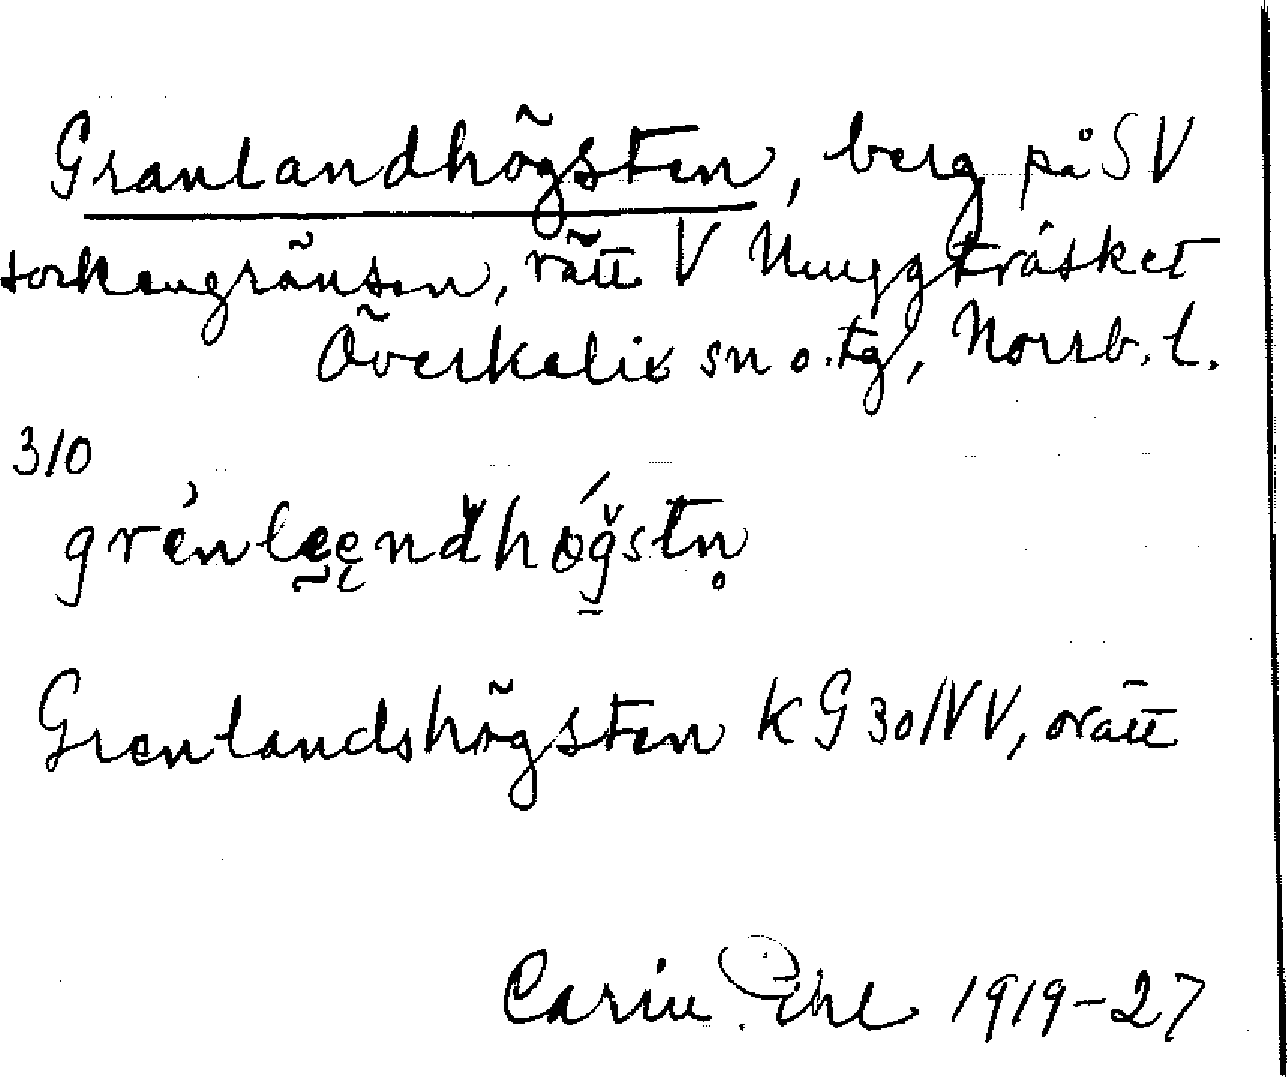 Granlandhögsten, berg på SV
sockengränsen, rätt V Muggträsket
Överkalix sn o. tg, Norrb. l.
310
Grenlandshögsten KG 30 NV, orätt
Carin Pihl 1919-27